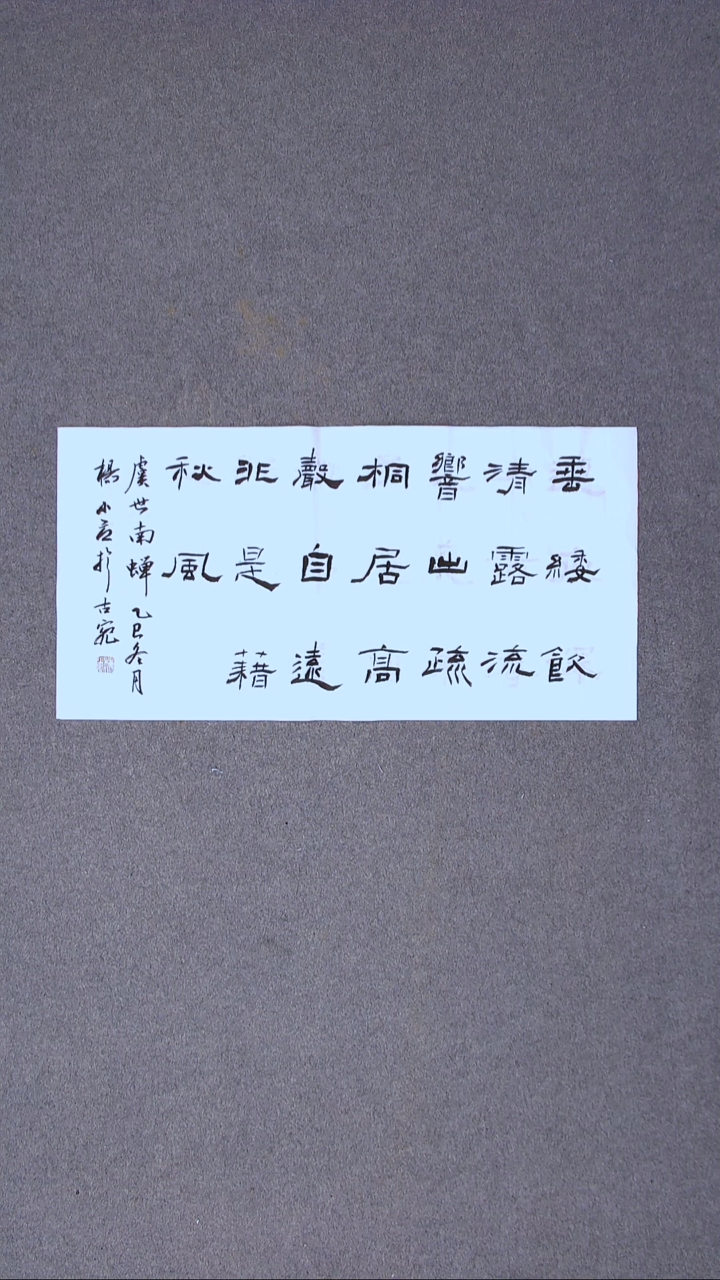 垂緌飲
清露流
響出疏
桐居高
聲自遠
非是藉
秋風
虞世南蝉 乙巳冬月
楊小於古宛